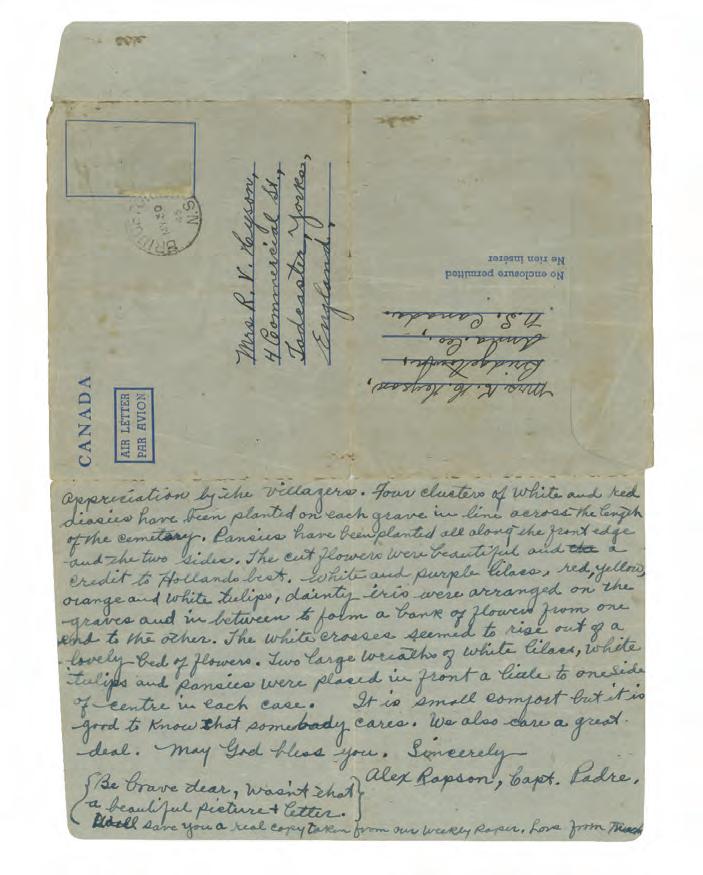 CANADA
AIR LETTER
PAR AVION
BRIDGE
N.S.
Mrs R. V.
4 Commercial St.,
Tadcaster, Yorks,
England.
No enclosure permitted
Ne rien insérer
Mrs.
Anna. Co.,
N.S. Canada.
appreciation by the villagers. Four clusters of white and red
diasies have been planted on each grave in line across the length
of the cemetary. Pansies have been planted all along the front edge
and the two sides. The cut flowers were beautiful and the a
credit to Hollands best. White and purple lilacs, red, yellow,
orange and white tulips, dainty iris were arranged on the
graves and in between to form a bank of flowers from one
end to the other. The white crosses seemed to rise out of a
lovely bed of flowers. Two large wreaths of white lilacs, white
tulips and pansies were placed in front a little to one side
of centre in each case. It is small comfort but it is
good to know that somebody cares. We also care a great
deal. May God bless you. Sincerely
Alex Rapson, Capt. Padre.
{Be brave dear, wasn't that
a beautiful picture & letter.}
save you a real copy taken from our weekly paper. Love from